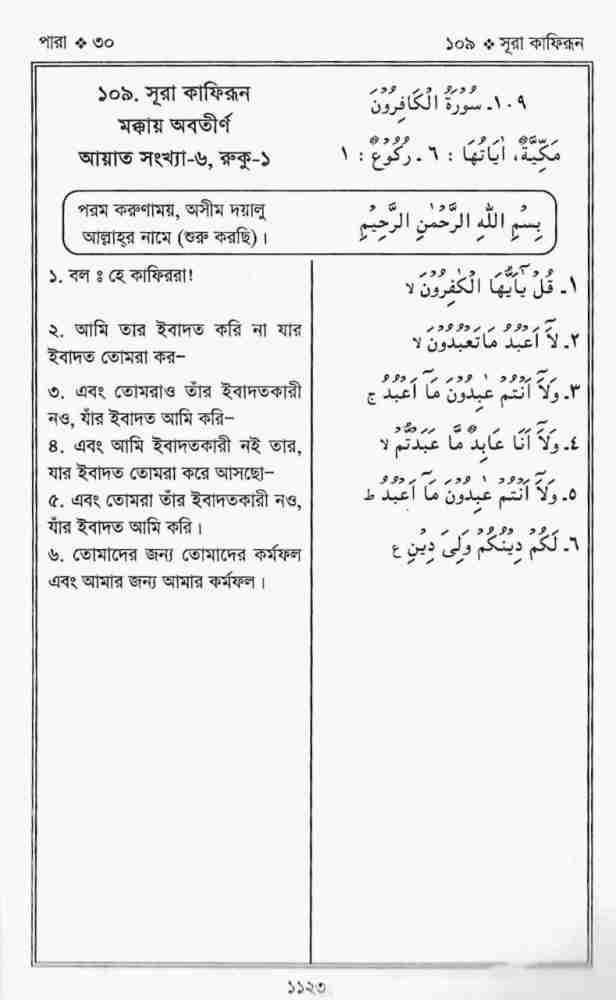 পারা ❖ ৩০
১০৯ ❖ সূরা কাফিরূন
১০৯. সূরা কাফিরূন
মক্কায় অবতীর্ণ
আয়াত সংখ্যা-৬, রুকু-১
١٠٩ـ سُوْرَةُ الْكَافِرُوْنَ
مَكِّيَّةٌ، اٰيَاتُهَا : ٦ ـ رُكُوْعٌ : ١
পরম করুণাময়, অসীম দয়ালু
আল্লাহ্‌র নামে (শুরু করছি)।
بِسْمِ اللّٰهِ الرَّحْمٰنِ الرَّحِيْمِ
১. বল ঃ হে কাফিররা!
২. আমি তার ইবাদত করি না যার
ইবাদত তোমরা কর–
৩. এবং তোমরাও তাঁর ইবাদতকারী
নও, যাঁর ইবাদত আমি করি–
৪. এবং আমি ইবাদতকারী নই তার,
যার ইবাদত তোমরা করে আসছো–
৫. এবং তোমরা তাঁর ইবাদতকারী নও,
যাঁর ইবাদত আমি করি।
৬. তোমাদের জন্য তোমাদের কর্মফল
এবং আমার জন্য আমার কর্মফল।
١ـ قُلْ يٰٓاَيُّهَا الْكٰفِرُوْنَ لا
٢ـ لَآ اَعْبُدُ مَا تَعْبُدُوْنَ لا
٣ـ وَلَآ اَنْتُمْ عٰبِدُوْنَ مَآ اَعْبُدُ ج
٤ـ وَلَآ اَنَا عَابِدٌ مَّا عَبَدْتُّمْ لا
٥ـ وَلَآ اَنْتُمْ عٰبِدُوْنَ مَآ اَعْبُدُ ط
٦ـ لَكُمْ دِيْنُكُمْ وَلِىَ دِيْنِ ع
১১২৩